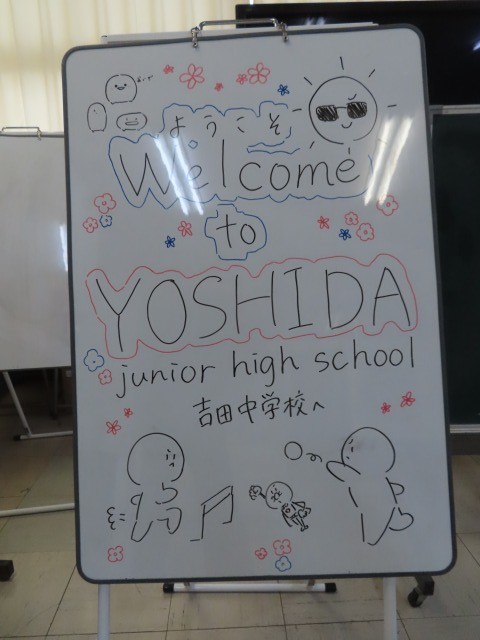 ようこそ
Welcome
to
YOSHIDA
junior high school
吉田中学校へ